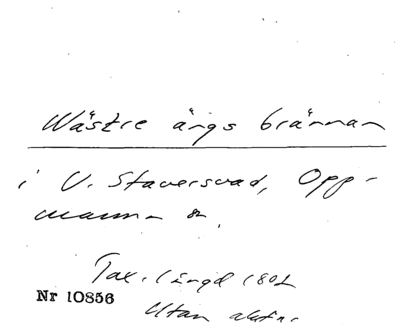 Wästre ängs brännan
i V. Staversvad, Opp-
manna sn.
Tax. längd 1801
Nr 10856
Utan